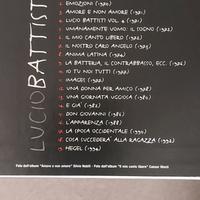 LUCIO BATTIST
EMOZIONI (1970)
AMORE E NON AMORE (1971)
LUCIO BATTISTI VOL. 4 (1971)
UMANAMENTE UOMO: IL SOGNO (1972)
IL MIO CANTO LIBERO (1972)
IL NOSTRO CARO ANGELO (1973)
ANIMA LATINA (1974)
LA BATTERIA, IL CONTRABBASSO, ECC. (1976)
IO TU NOI TUTTI (1977)
IMAGES (1977)
UNA DONNA PER AMICO (1978)
UNA GIORNATA UGGIOSA (1980)
E GIÀ (1982)
DON GIOVANNI (1986)
L'APPARENZA (1988)
LA SPOSA OCCIDENTALE (1990)
COSA SUCCEDERÀ ALLA RAGAZZA (1992)
HEGEL (1994)
Foto dell'album "Amore e non amore" Silvio Nobili - Foto dell'album "Il mio canto libero" Caesar Monti